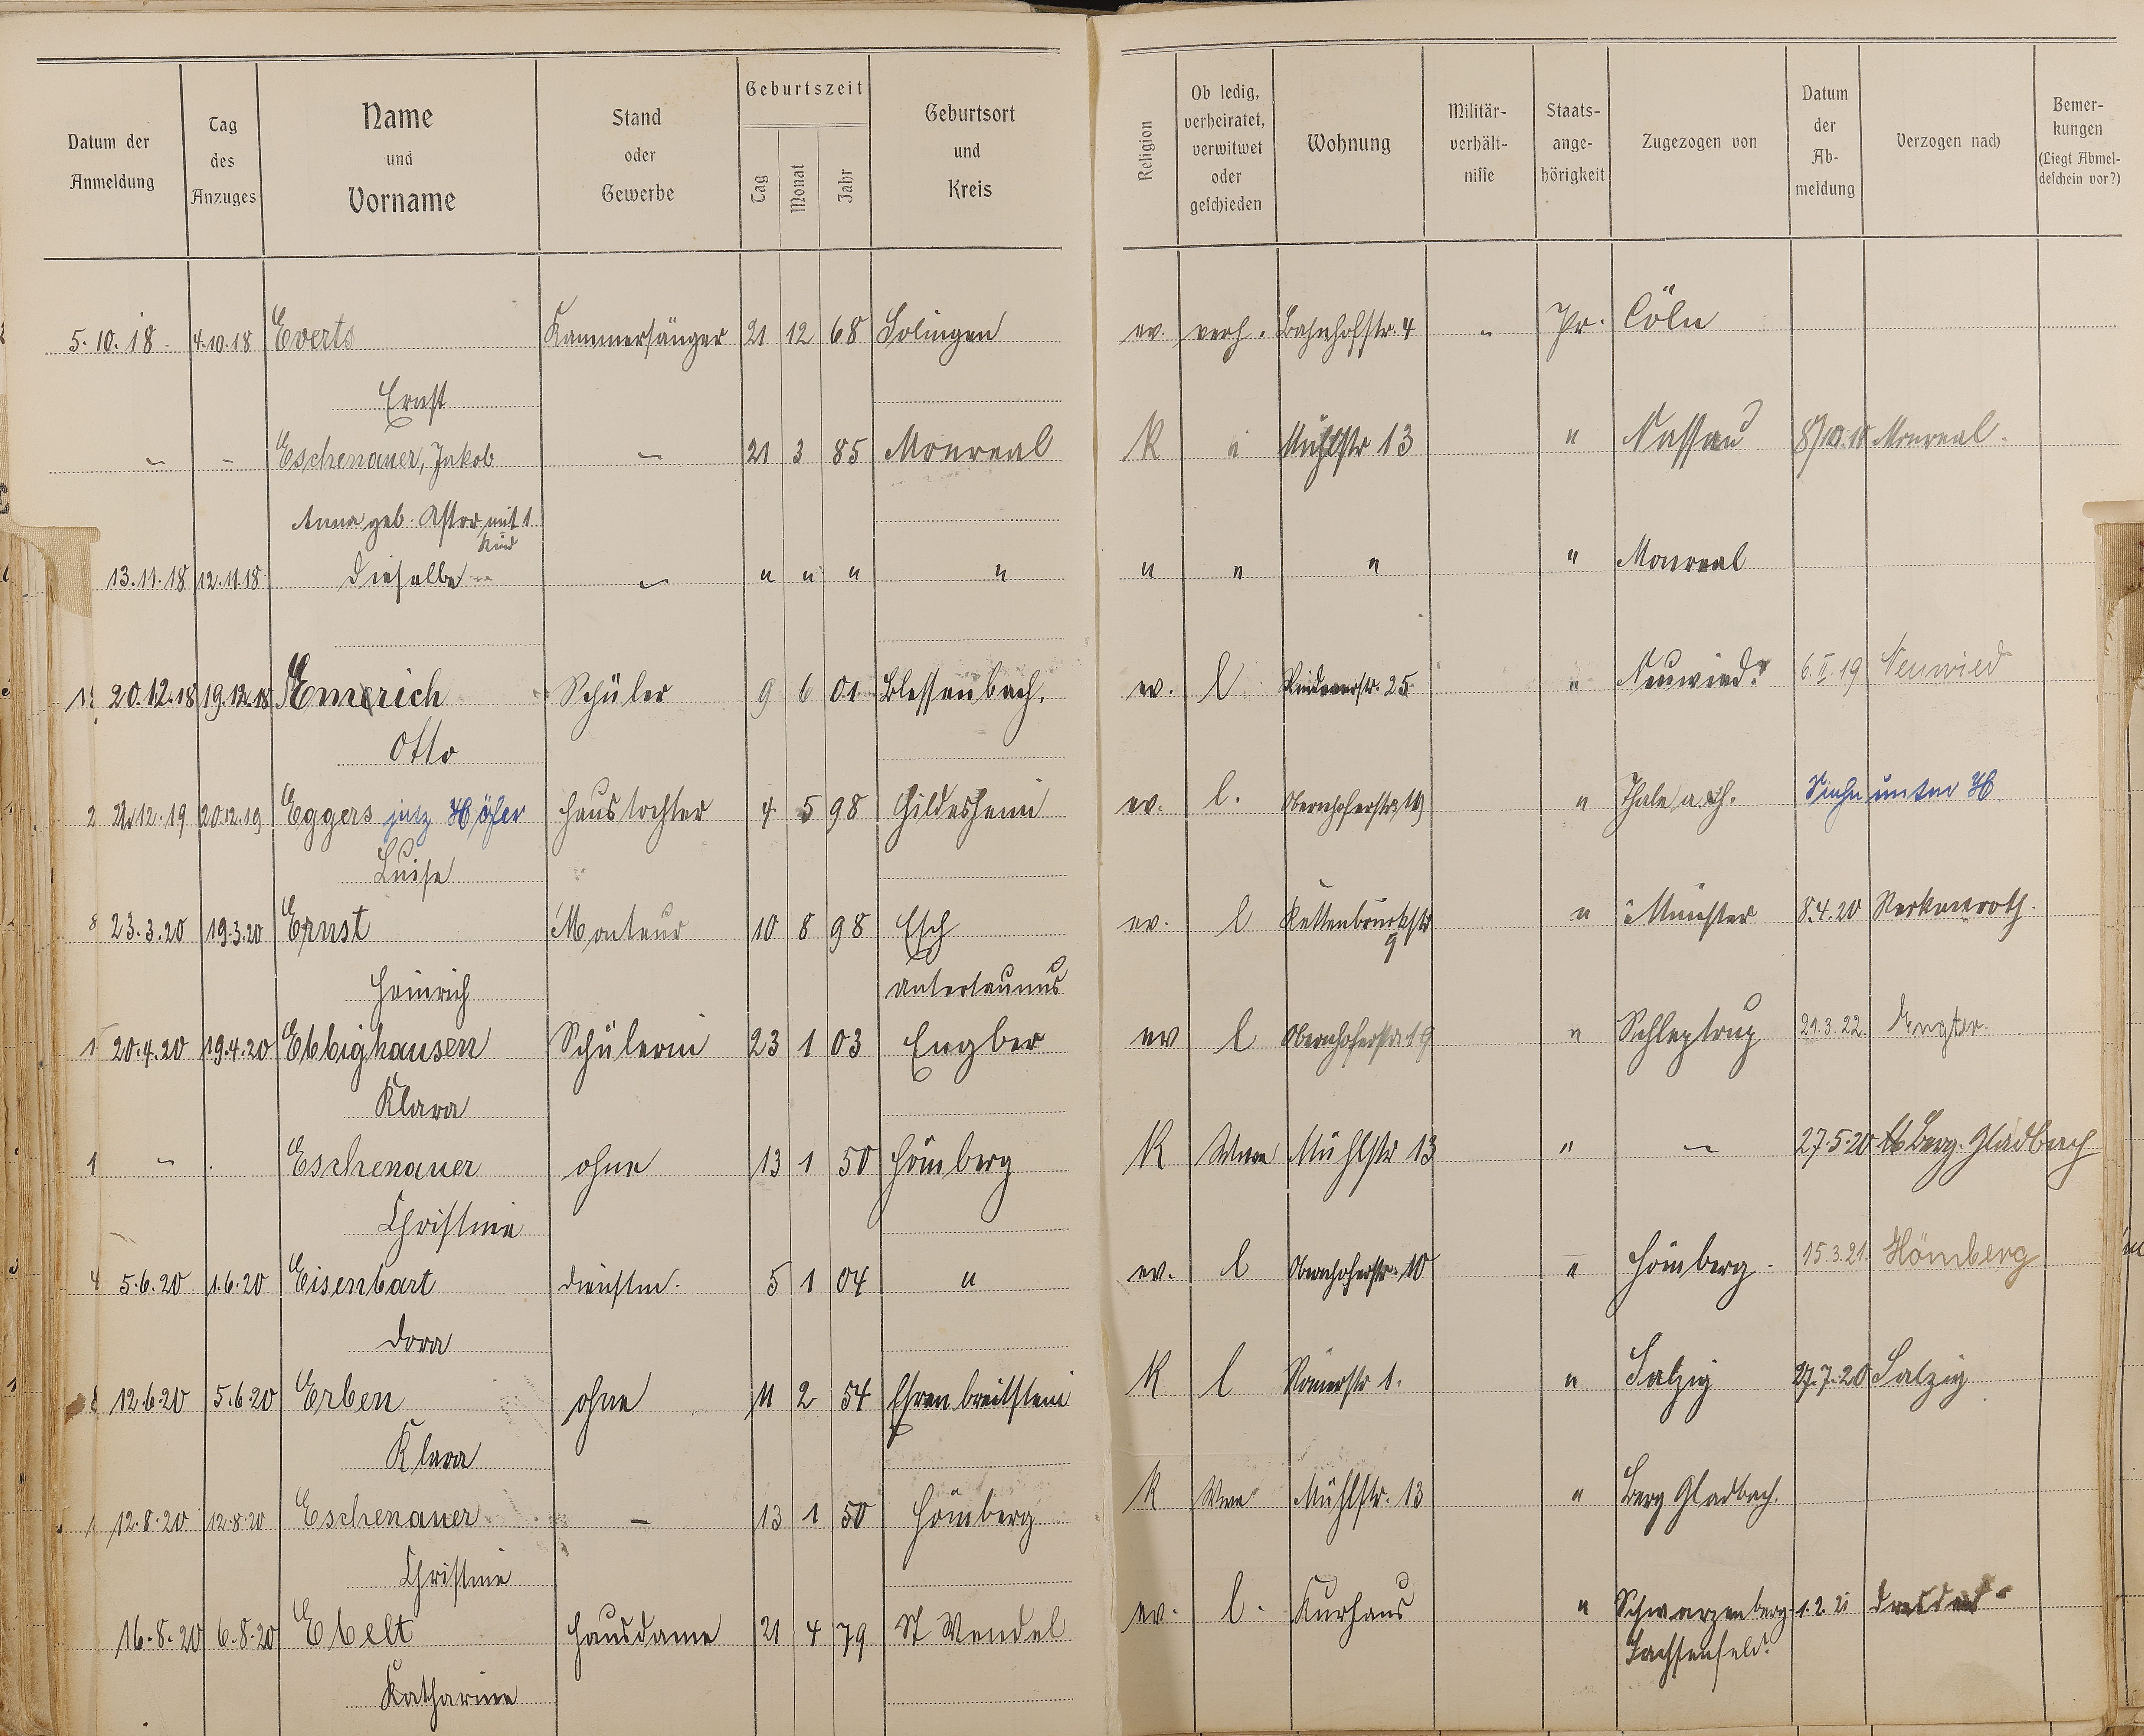 Datum der Anmeldung | Tag des Anzuges | Name und Vorname | Stand oder Gewerbe | Geburtszeit Tag Monat Jahr | Geburtsort und Kreis | Religion | Ob ledig, verheiratet, verwitwet oder geschieden | Wohnung | Militär-verhält-nisse | Staats-ange-hörigkeit | Zugezogen von | Datum der Ab-meldung | Verzogen nach | Bemer-kungen (Liegt Abmel-deschein vor?)
5.10.18 4.10.18 Everts Kammersänger 21 12 68 Solingen ev. verh. Bahnhofstr. 4 " Pr. Cöln
Ernst
" - Eschenauer, Jakob - 21 3 85 Monreal K " Mühlstr 13 " Nassau Monreal.
Anna geb. Astor mit 1
Kind
13.11.18 12.11.18 Dieselbe - " " " " " " " " Monreal
20.12.18 19.12.18 Emmerich Schüler 9 6 01 Blessenbach. ev. l 25 " Neuwied 6.II.19 Neuwied
Otto
12.19 20.12.19 Eggers jetz Höfer Haustochter 4 5 98 Hildesheim ev. l. Obernhoferstr. " Thale a. H. Siehe unter H
Luise
8 23.3.20 19.3.20 Ernst Monteur 10 8 98 Esch ev. l Kettenbrückstr " Münster 8.4.20
9
Heinrich Untertaunus
1 20.4.20 19.4.20 Ebbighausen Schülerin 23 1 03 Engter ev l Obernhoferstr. 19 " Schleptrup 21.3.22 Engter.
Klara
1 " . Eschenauer ohne 13 1 50 Hömberg K Wwe Mühlstr 13 " - 27.5.20 Berg. Gladbach
Christine
4 5.6.20 1.6.20 Eisenbart Dienstm. 5 1 04 " ev. l Obernhoferstr. 10 " Hömberg. 15.3.21. Hömberg
Dora
12.6.20 5.6.20 Erben ohne 11 2 54 Ehrenbreitstein K l Römerstr 1. " Salzig 27.7.20 Salzig
Klara
12.8.20 12.8.20 Eschenauer - 13 1 50 Hömberg K Wwe Mühlstr. 13 " Berg Gladbach.
Christine
16.8.20 6.8.20 Ebelt Hausdame 21 4 79 St Wendel ev. l. Kurhaus " Schwarzenberg 1.2.21 Dresden
Sachsenfeld
Katharine